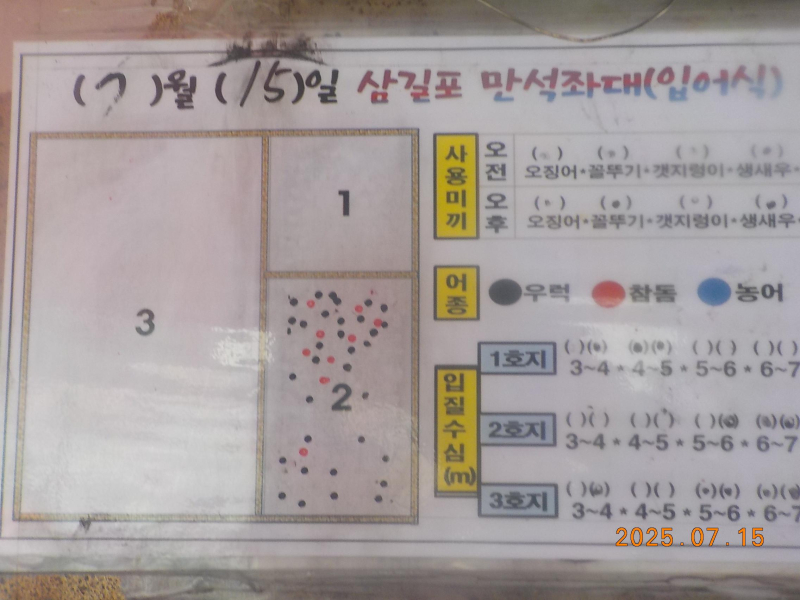 ( 7 )월 ( 15)일 삼길포 만석좌대(입어식)
1
2
3
사용미끼
오전
오징어*꼴뚜기*갯지렁이*생새우*
오후
오징어*꼴뚜기*갯지렁이*생새우*
어종
우럭 참돔 농어
입질수심(m)
1호지
3~4 * 4~5 * 5~6 * 6~7
2호지
3~4 * 4~5 * 5~6 * 6~7
3호지
3~4 * 4~5 * 5~6 * 6~7
2025.07.15